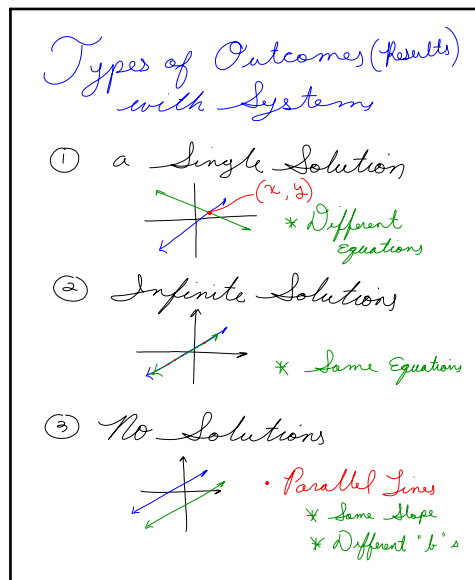 Types of Outcomes (Results)
with Systems
① a Single Solution
(x, y)
* Different
Equations
② Infinite Solutions
* Same Equations
③ No Solutions
• Parallel Lines
* Same Slope
* Different "b" s